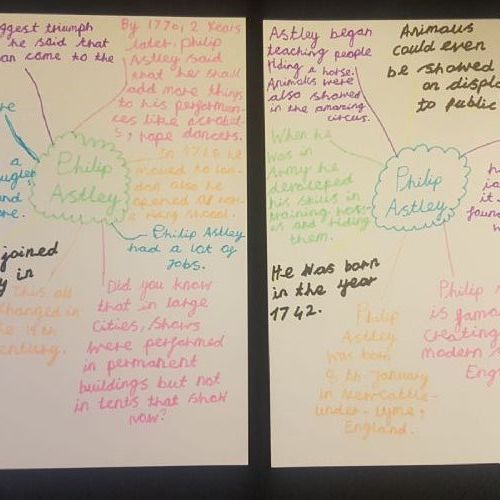 ggest triumph
he said that
an come to the
By 1770, 2 Years
later, Philip
Astley said
that he shall
add more things
to his performan-
ces like acrobat-
s, rope dancers.
Philip
Astley
In 1768 he
moved to lon-
don also he
opened
a rideing shcool.
a
and
Philip Astley
had a lot of
Jobs.
joined
y in
This all
changed in
the 19th
century.
Did you know
that in large
Cities, Shows
were performed
in permanent
buildings but not
in tents that show
now?
Astley began
teaching people
riding a horse.
Animals were
also showed
in the amazing
circus.
Animals
could even
be showed
on displa
to public
When he
was in
Army he
developed
his skills in
training hors-
es and riding
them.
Philip
Astley
h
is
it.
foun
w
He was born
in the year
1742.
Philip
Astley
was born
8 th January
in Newcastle-
under-lyme,
England.
Philip
is famo
creating
modern
Eng